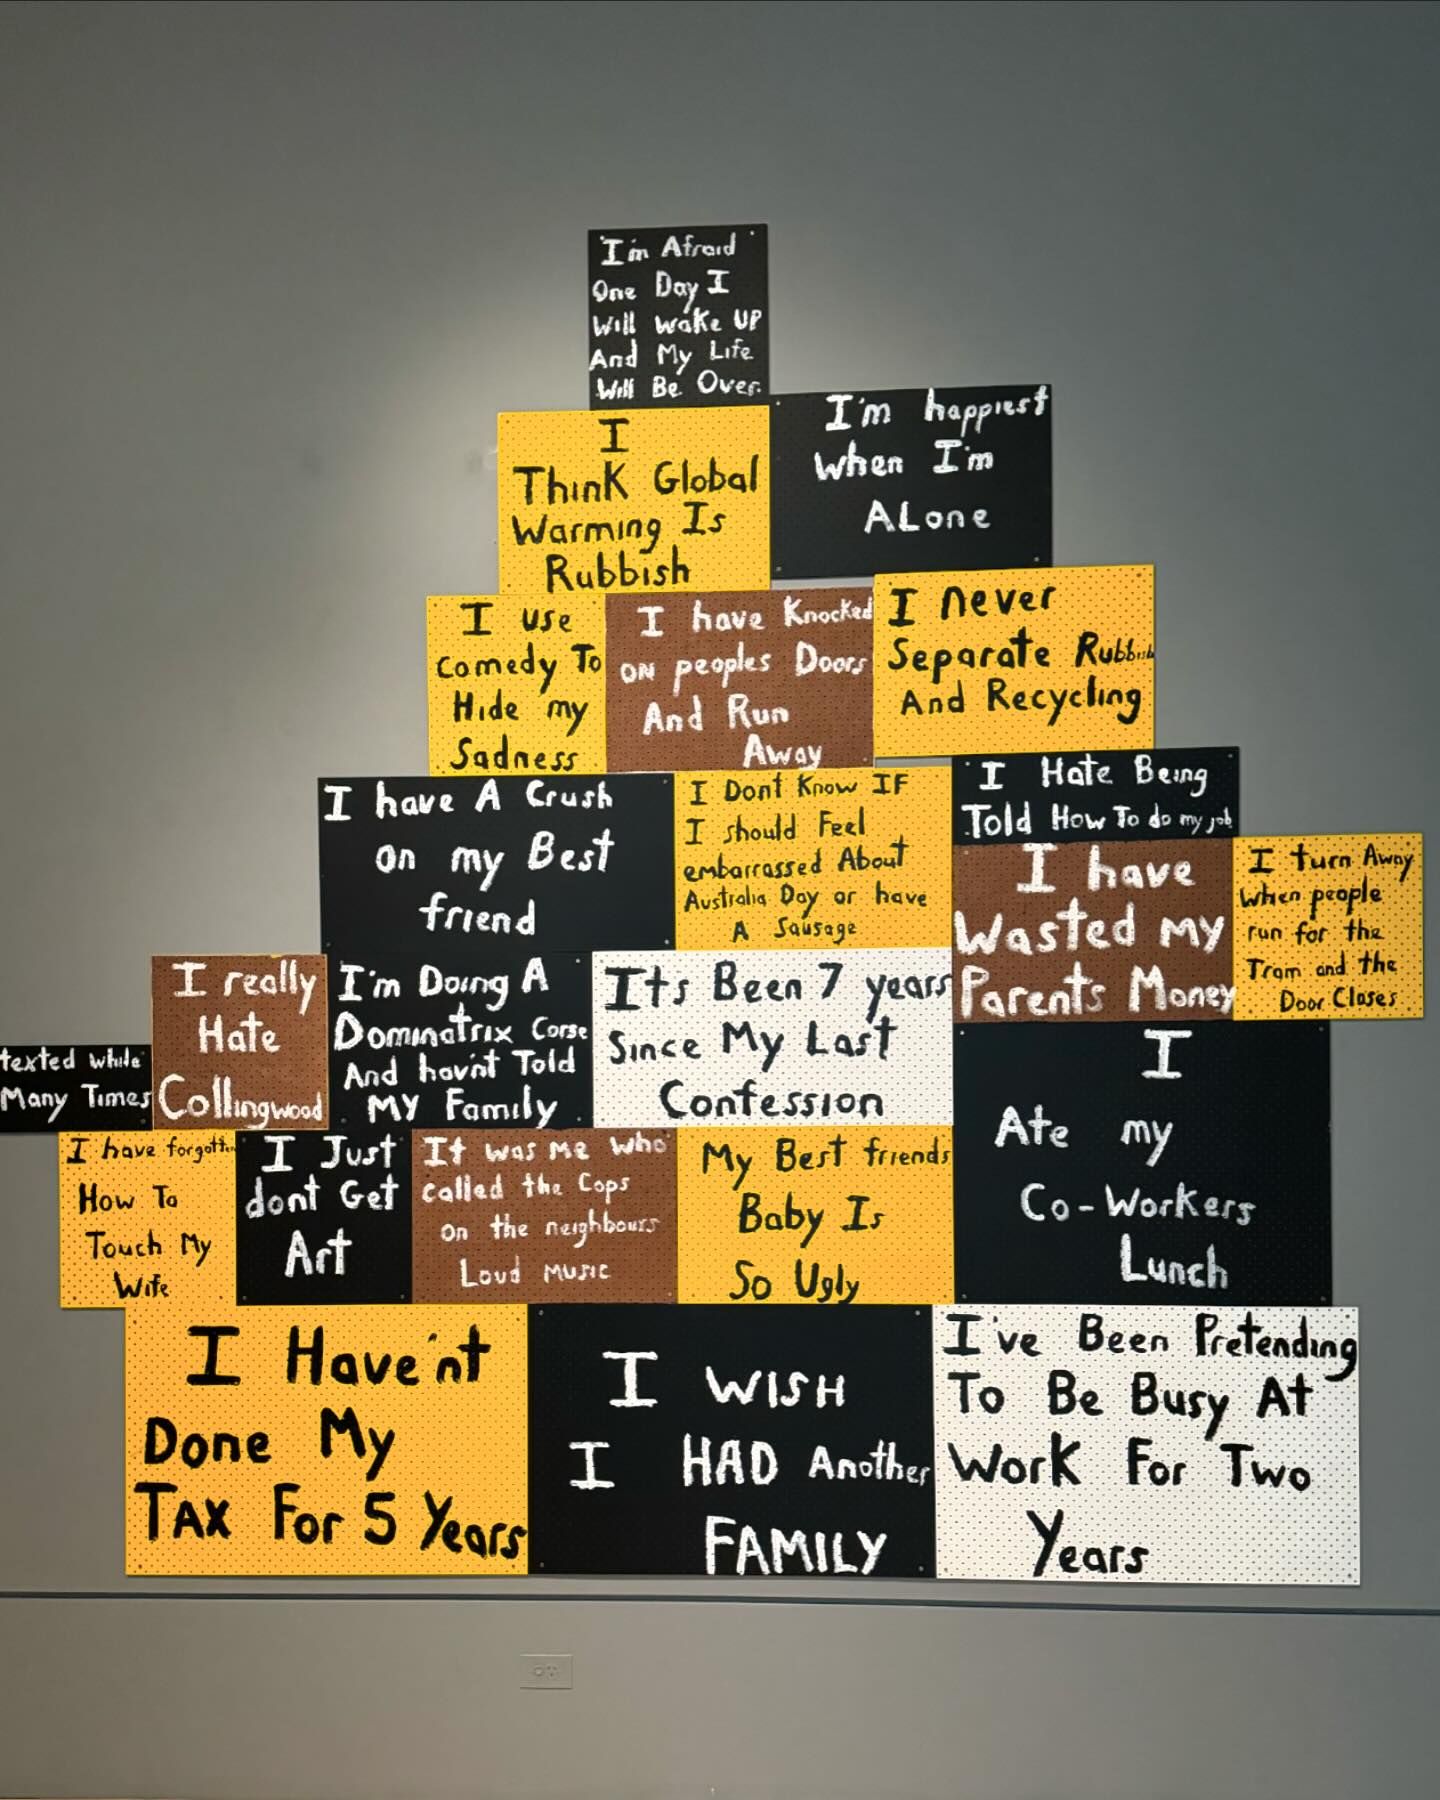 I'm Afraid
One Day I
Will wake UP
And My Life
Will Be Over.
I'm happiest
When I'm
ALone
I
Think Global
Warming Is
Rubbish
I use
Comedy To
Hide my
Sadness
I have Knocked
ON peoples Doors
And Run
Away
I never
Separate Rubbish
And Recycling
I have A Crush
on my Best
friend
I Dont Know IF
I should Feel
embarrassed About
Australia Day or have
A Sausage
I Hate Being
Told How To do my job
I have
Wasted my
Parents Money
I turn Away
when people
run for the
Tram and the
Door Closes
texted while
Many Times
I really
Hate
Collingwood
I'm Doing A
Dominatrix Corse
And hav'nt Told
MY Family
Its Been 7 years
Since My Last
Confession
I
Ate my
Co-Workers
Lunch
I have forgotten
How To
Touch My
Wife
I Just
dont Get
Art
It was me who
called the Cops
on the neighbours
Loud MUSIC
My Best friends
Baby Is
So Ugly
I Have'nt
Done My
TAX For 5 Years
I WISH
I HAD Another
FAMILY
I've Been Pretending
To Be Busy At
Work For Two
Years